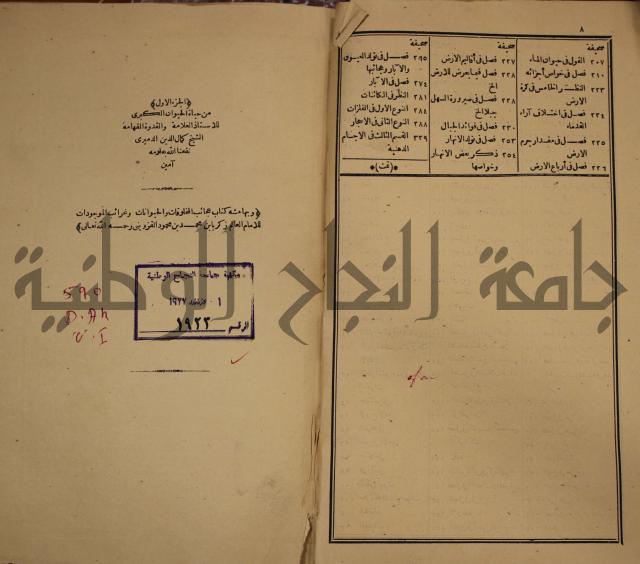 ٨
صحيفة
٢٠٧ القول فى حيوان الماء
٢١٠ فصل فى خواص أجزائه
٢٢٣ النظر الخامس فى كرة
الارض
٢٢٤ فصل فى اختلاف آراء
القدماء
٢٢٥ فصل فى مقدار جرم
الارض
٢٢٦ فصل فى أرباع الارض
صحيفة
٢٢٧ فصل فى أقاليم الارض
٢٢٨ فصل فيما يعرض للارض
الخ
٢٢٨ فصل فى صيرورة السهل
جبلا الخ
٢٣٠ فصل فى فوائد الجبال
٢٥٣ فصل فى تولد الانهار
٢٥٤ ذكر بعض الانهار
وخواصها
صحيفة
٢٦٥ فصل فى تولد العيون
والآبار وعجائبها
٢٧٤ فصل فى الآبار
٢٨١ النظر فى الكائنات
٢٨٤ النوع الاول فى الفلزات
٢٨٨ النوع الثانى فى الاحجار
٣٢٩ القسم الثالث فى الاجسام
الدهنية
*(تمت)*
﴿الجزء الاول﴾
من حياة الحيوان الكبرى
للاستاذ العلامة والقدوة الفهامة
الشيخ كمال الدين الدميرى
نفعنا الله بعلومه
آمين
﴿وبهامشه كتاب عجائب المخلوقات والحيوانات وغرائب الموجودات
للامام العالم زكريا بن محمد بن محمود القزوينى رحمه الله تعالى﴾
مكتبة جامعة النجاح الوطنية
١٩٧٧
الرقم ١٩٢٣
590
V. I
جامعة النجاح الوطنية